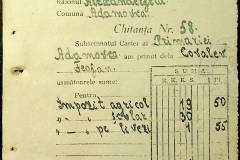 Raionul Alexandreni
Comuna Adamovca.
Chitanța Nr. 58.
Subsemnatul Casier al Primăriei
Adamovca am primit dela Covalev
Ștefan.
următoarele sume:
SUMA
Pentru
Impozit agricol 19 50
" școlar 30
" pe livezi 1 55